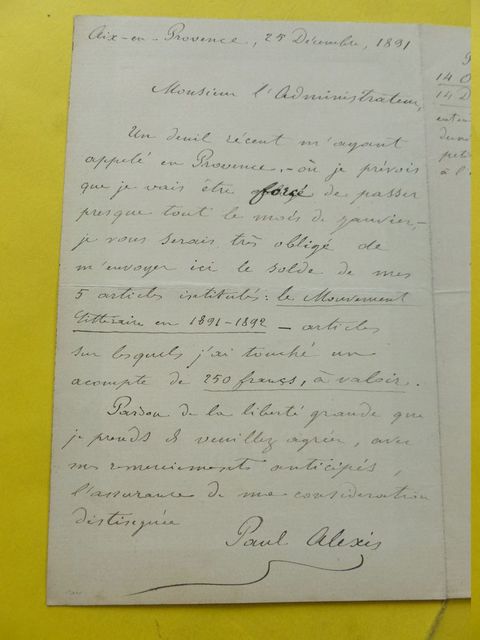 Aix-en-Provence, 25 Décembre, 1891
Monsieur l'Administrateur,
Un deuil récent m'ayant
appelé en Provence, – où je prévois
que je vais être forcé de passer
presque tout le mois de janvier, –
je vous serais très obligé de
m'envoyer ici le solde de mes
5 articles intitulés : le Mouvement
littéraire en 1891-1892 – articles
sur lesquels j'ai touché un
acompte de 250 francs, à valoir.
Pardon de la liberté grande que
je prends & veuillez agréer, avec
mes remerciements anticipés,
l'assurance de ma considération
distinguée
Paul Alexis
14 O
14 D
à l'